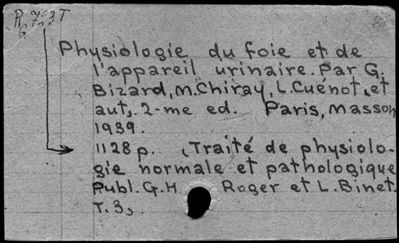 Physiologie du foie et de
l'appareil urinaire. Par G.
Bizard, M. Chiray, L. Cuénot, et
aut,. 2-me ed. Paris, Masson
1939.
1128 p. (Traité de physiolo-
gie normale et pathologique
Publ. G. H. Roger et L. Binet.
T. 3,.